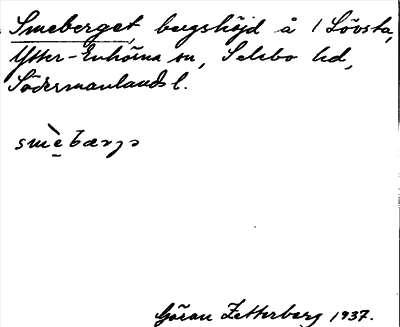 Smeberget, bergshöjd å 1 Lövsta,
Ytter-Enhörna sn, Selebo hd,
Södermanlands l.
smèbærjə
Göran Zetterberg 1937.